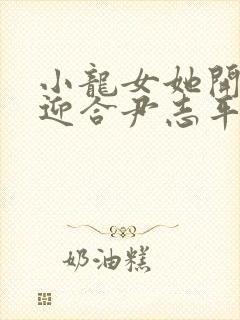 小龍女她開
迎合尹志平
奶油糕